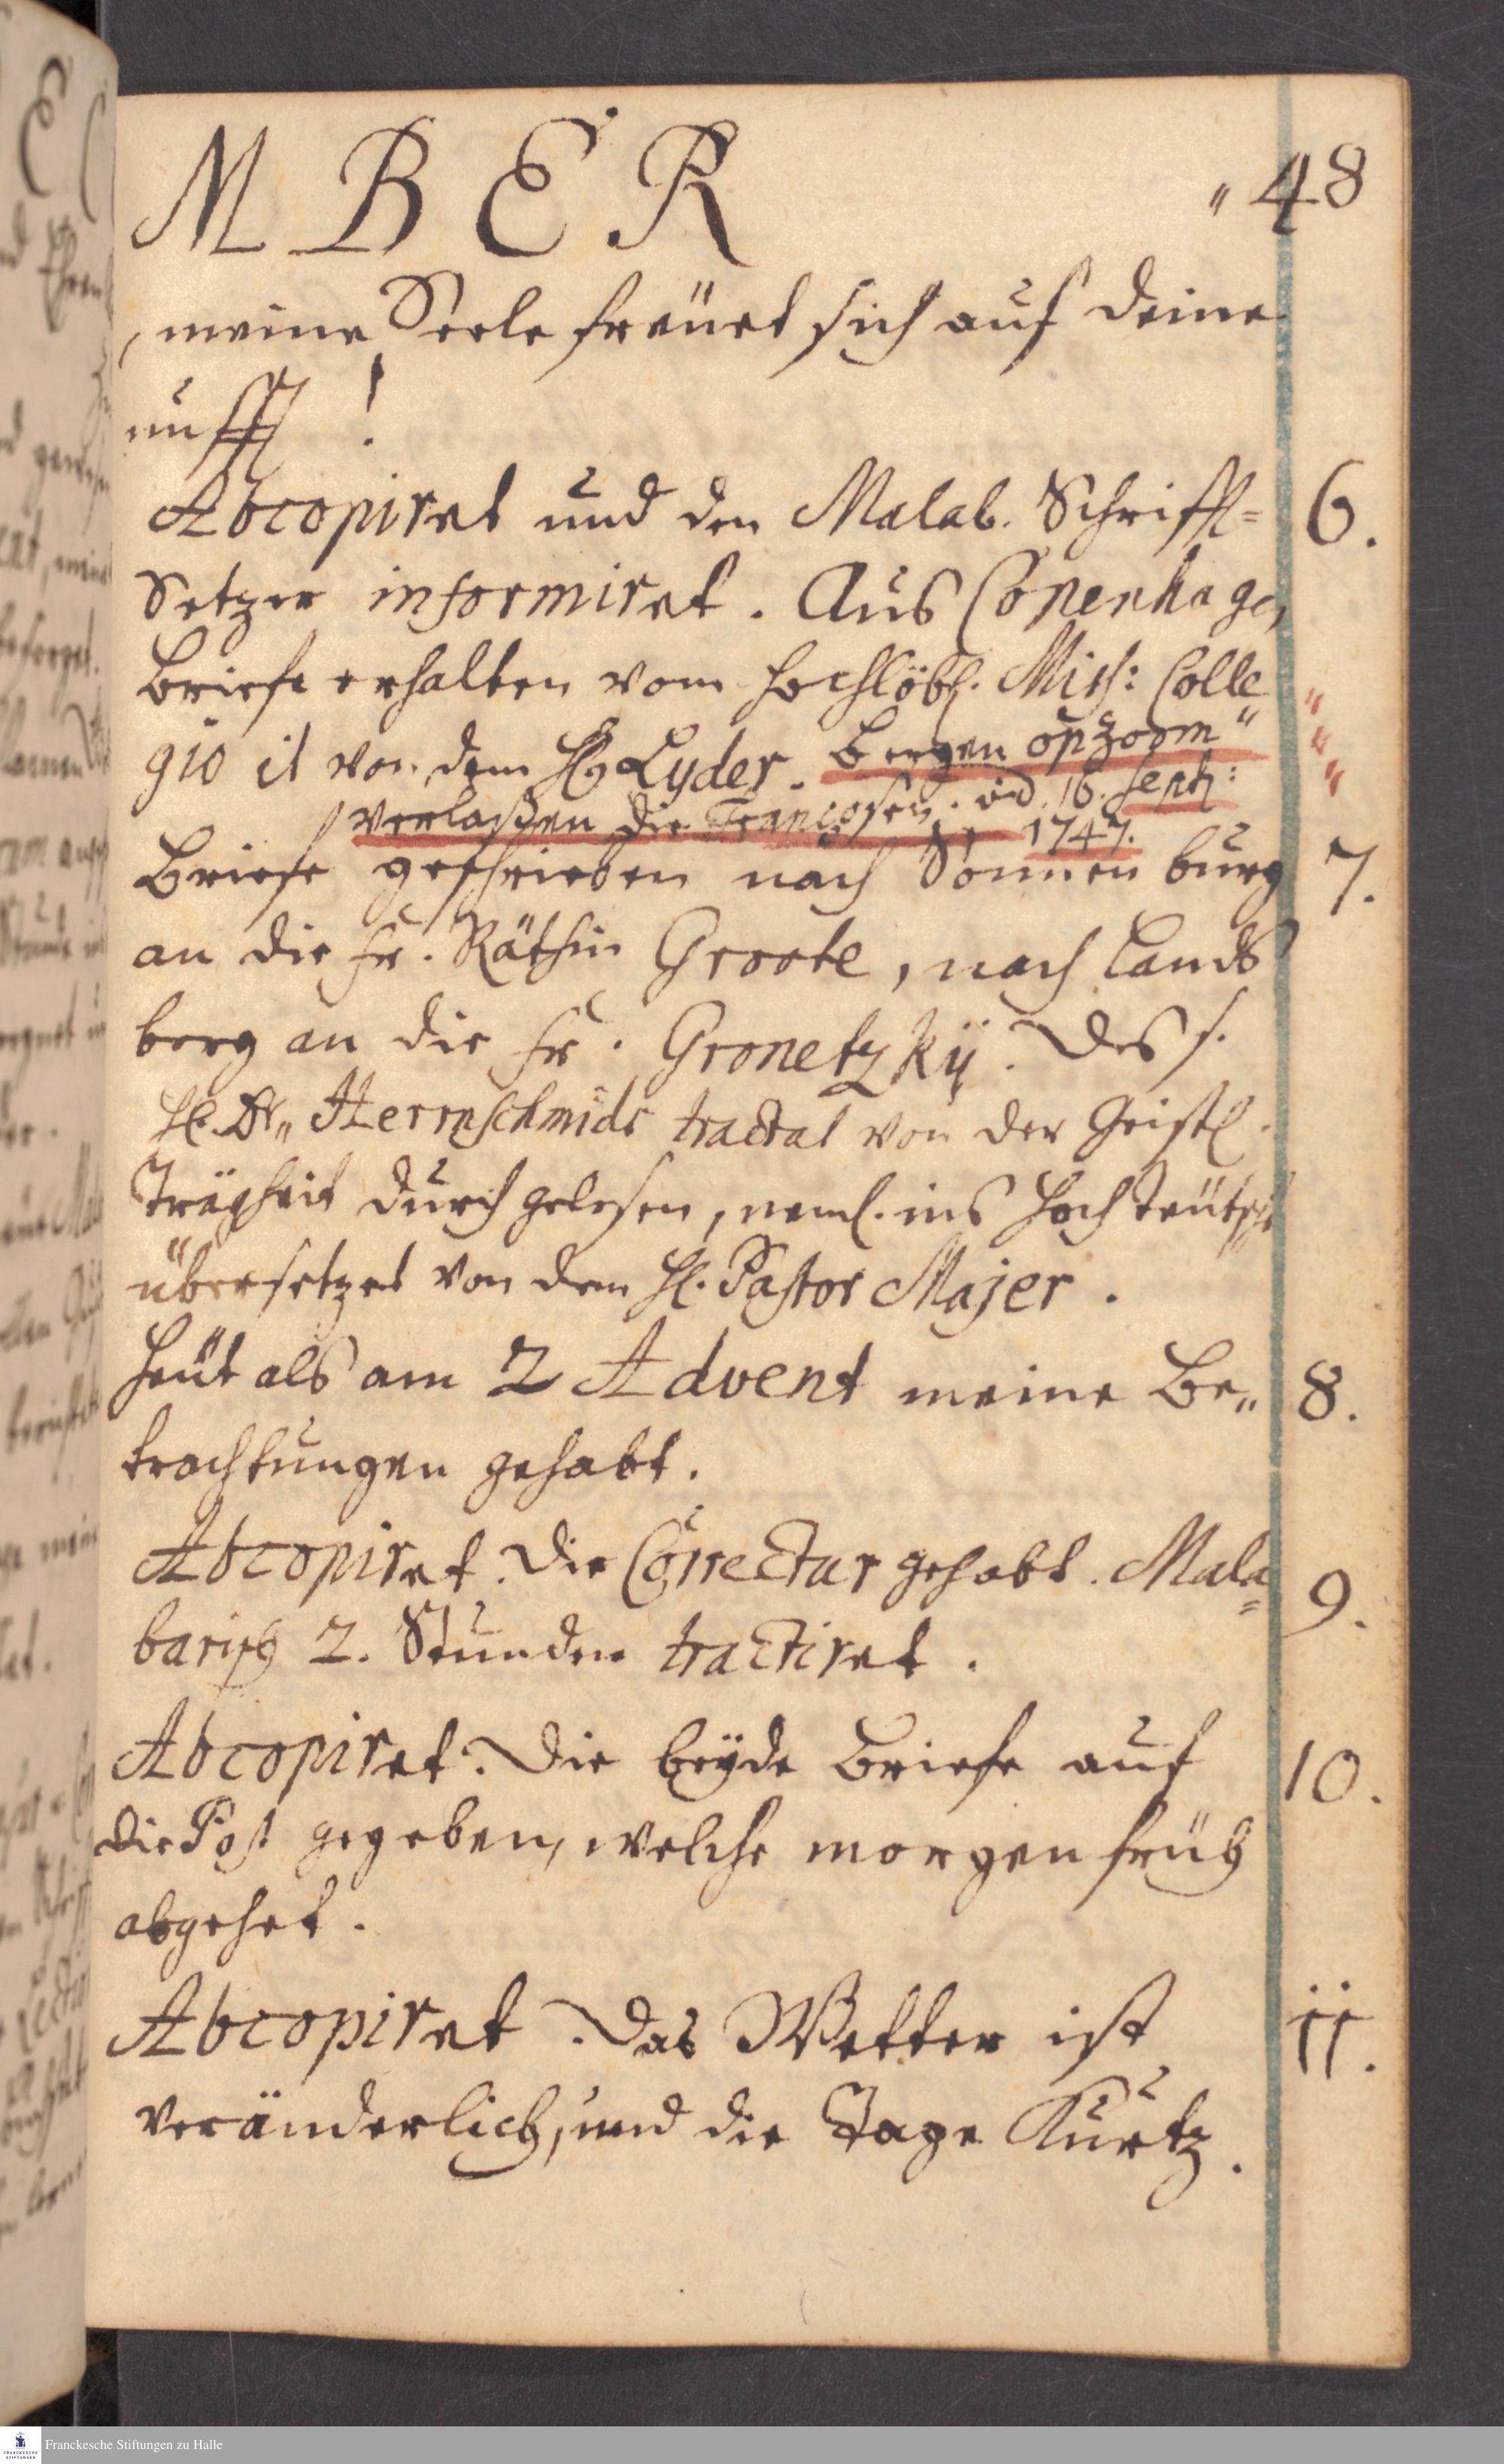 M B E R
„ 48
, meine Seele freüet sich auf deine
unfft !
Abcopiret und den Malab. Schrifft= 6.
Setzer informiret. Aus Copenhagen
Briefe erhalten vom hochlöbl. Miss: Colle
gio it von dem H Lyder. Bergen opzoom "
verlaßen die Françosen. vid. 16. Sept:
1747.
Briefe geschrieben nach Sonnenburg 7.
an die Fr. Räthin Groote, nach Lands
berg an die Fr. Gronetzkÿ. Des s.
H. Dr„ Herrnschmids tractat von der Geistl.
Trägheit durchgelesen, neml. ins Hochteütsche
übersetzet von dem H. Pastor Majer.
Heüt als am 2 Advent meine Be„ 8.
trachtungen gehabt.
Abcopiret. Die Correctur gehabt. Mala= 9.
barisch 2. Stunden tractiret.
Abcopiret. Die beÿde Briefe auf 10.
die Post gegeben, welche morgen früh
abgehet.
Abcopiret. Das Wetter ist 11.
veränderlich, und die Tage Kürtz.
Franckesche Stiftungen zu Halle